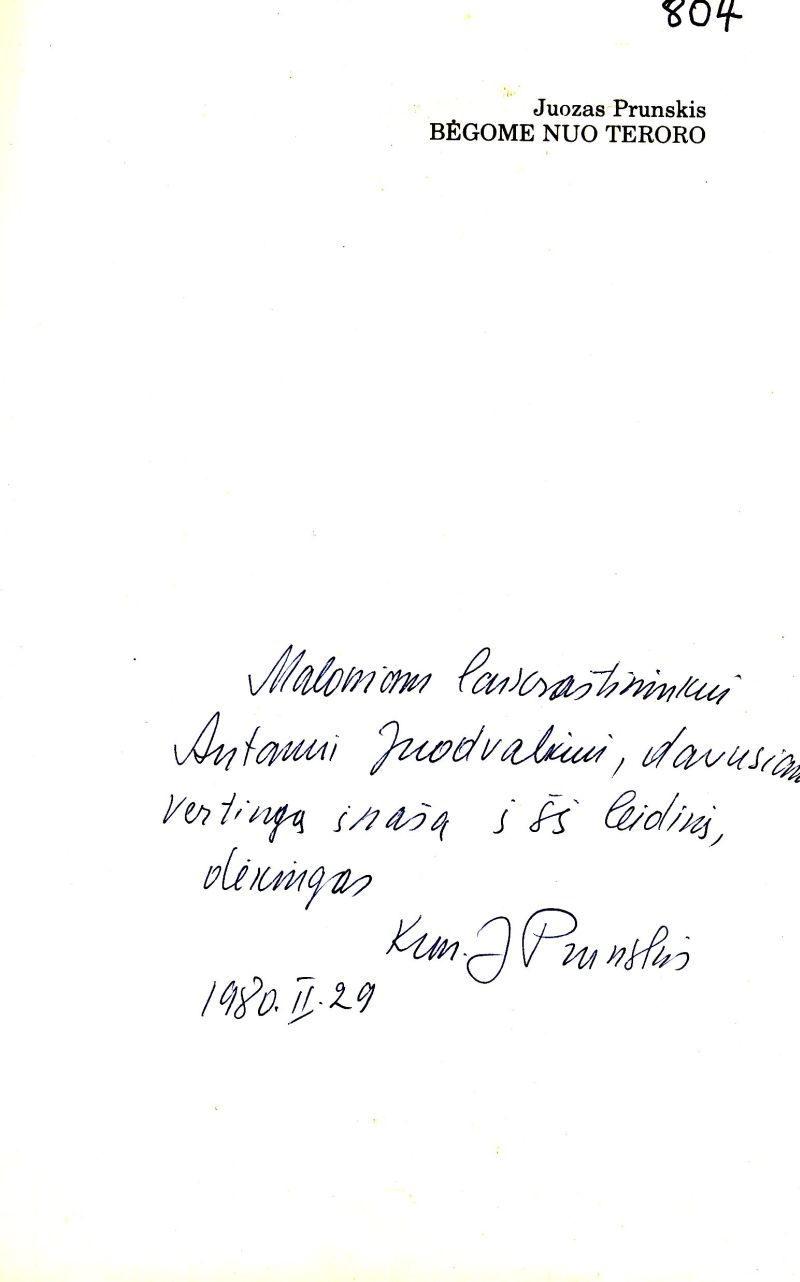 804
Juozas Prunskis
BĖGOME NUO TERORO
Maloniam laikraštininkui
Antanui Juodvalkiui, davusiam
vertingą įnašą į šį leidinį,
dėkingas
Kun. J Prunskis
1980. II. 29